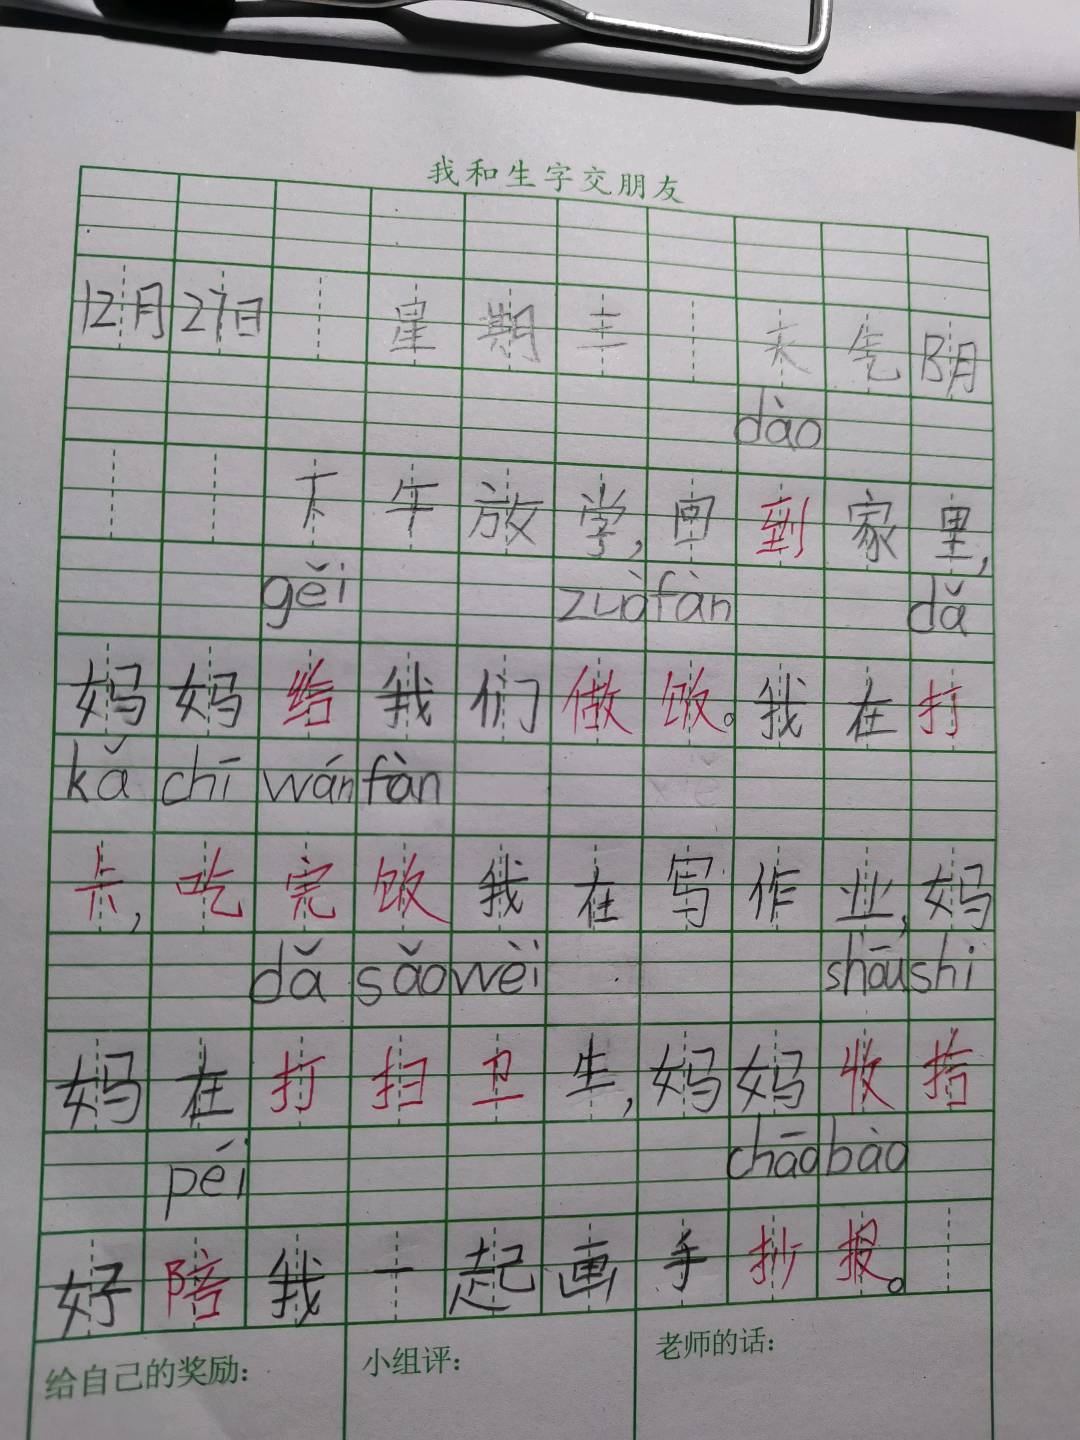 我和生字交朋友
12月27日 星期三 天气阴
dào
下午放学,回到家里,
gěi zuòfàn dǎ
妈妈给我们做饭。我在打
kǎ chī wán fàn
卡,吃完饭我在写作业,妈
dǎ sǎo wèi shōu shi
妈在打扫卫生,妈妈收拾
péi chāo bào
好陪我一起画手抄报。
给自己的奖励: 小组评: 老师的话: